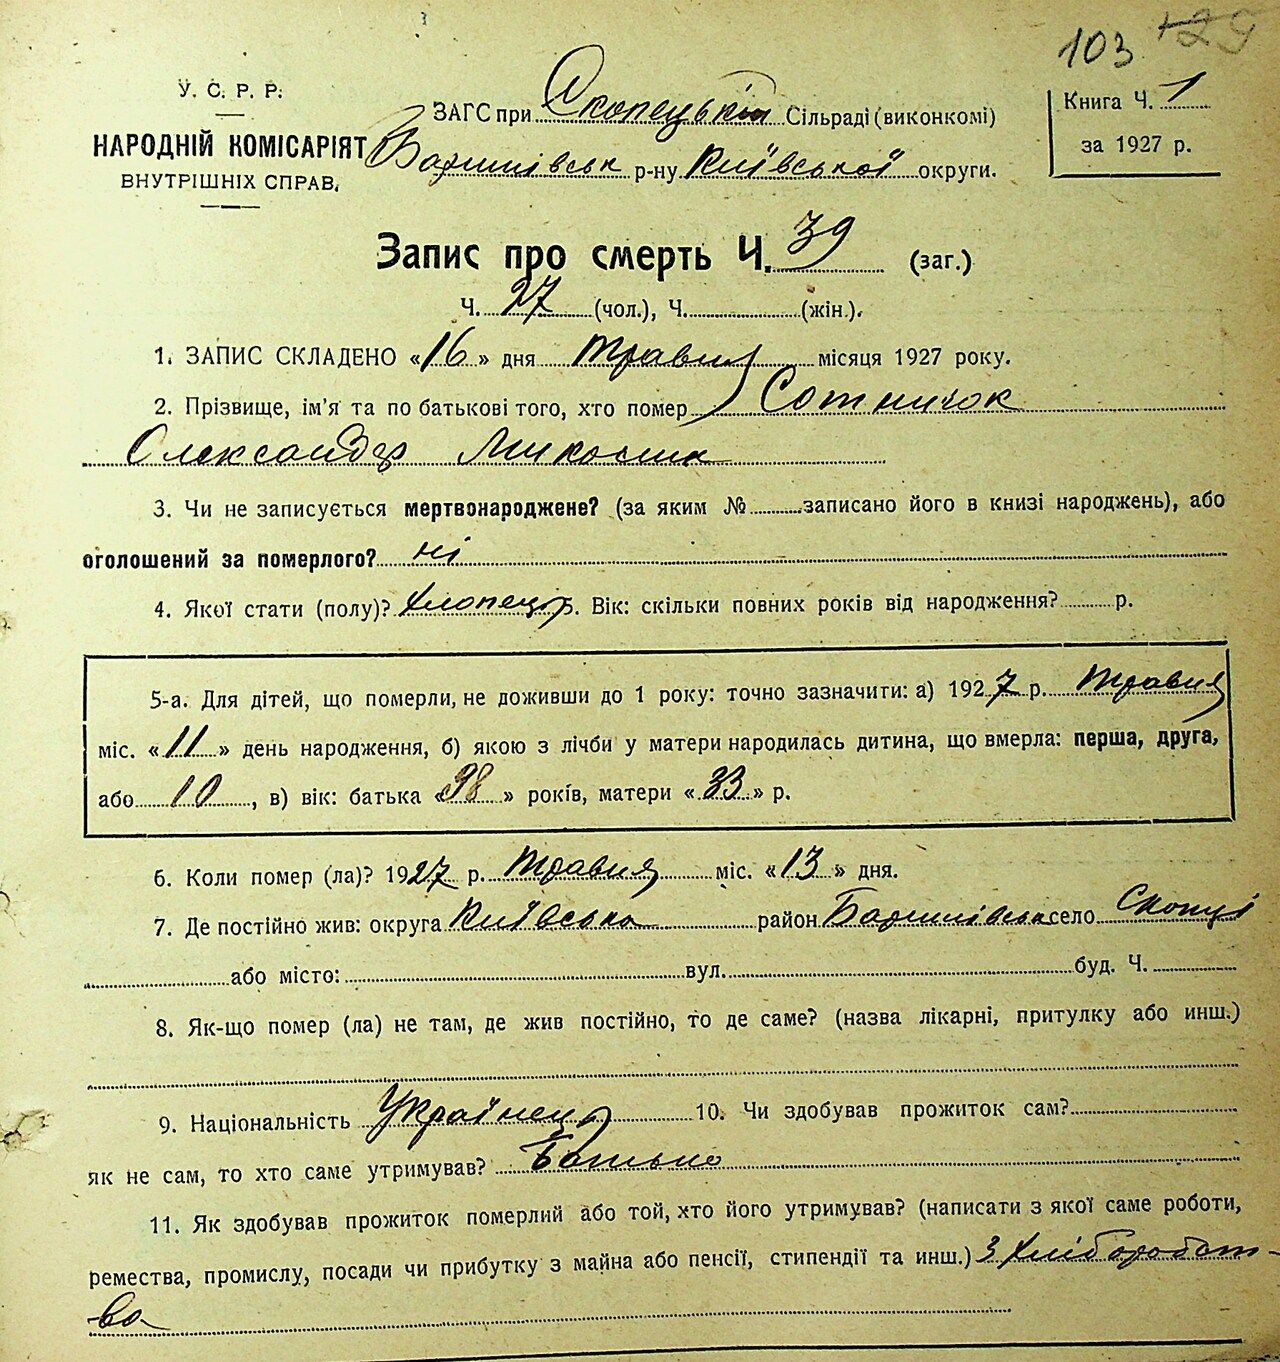 103 129
У. С. Р. Р.
НАРОДНІЙ КОМІСАРІЯТ
ВНУТРІШНІХ СПРАВ.
ЗАГС при Скопецькій Сільраді (виконкомі)
Баришівськ р-ну Київської округи.
Книга Ч. 1
за 1927 р.
Запис про смерть Ч. 39 (заг.)
Ч. 27 (чол.), Ч. (жін.).
1. ЗАПИС СКЛАДЕНО «16» дня травня місяця 1927 року.
2. Прізвище, ім'я та по батькові того, хто помер Сотничок
Олександер
3. Чи не записується мертвонароджене? (за яким № записано його в книзі народжень), або
оголошений за померлого? ні
4. Якої стати (полу)? хлопець. Вік: скільки повних років від народження? р.
5-а. Для дітей, що померли, не доживши до 1 року: точно зазначити: а) 1927 р. травня
міс. «11» день народження, б) якою з лічби у матери народилась дитина, що вмерла: перша, друга,
або 10, в) вік: батька «38» років, матери «33» р.
6. Коли помер (ла)? 1927 р. травня міс. «13» дня.
7. Де постійно жив: округа Київська район Баришівськ село Скопці
або місто: вул. буд. Ч.
8. Як-що помер (ла) не там, де жив постійно, то де саме? (назва лікарні, притулку або инш.)
9. Національність Українець 10. Чи здобував прожиток сам?
як не сам, то хто саме утримував? Батько
11. Як здобував прожиток померлий або той, хто його утримував? (написати з якої саме роботи,
ремества, промислу, посади чи прибутку з майна або пенсії, стипендії та инш.) З хліборобст-
-ва